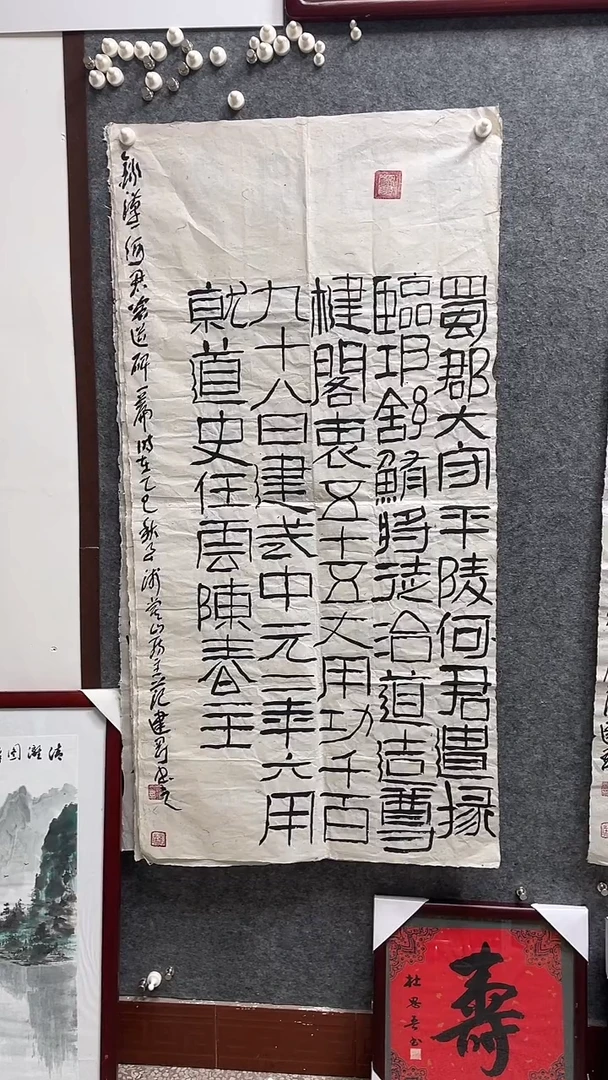 蜀郡大守平陵何君遣掾
臨邛舒鮪將徒治道造尊
楗閣袤五十五丈用功千百
九十八日建武中元二年六月
就道史任雲陳春主
錄漢何君道碑一篇時在乙巳秋山房主范建書之
清漓图
壽
杜思書